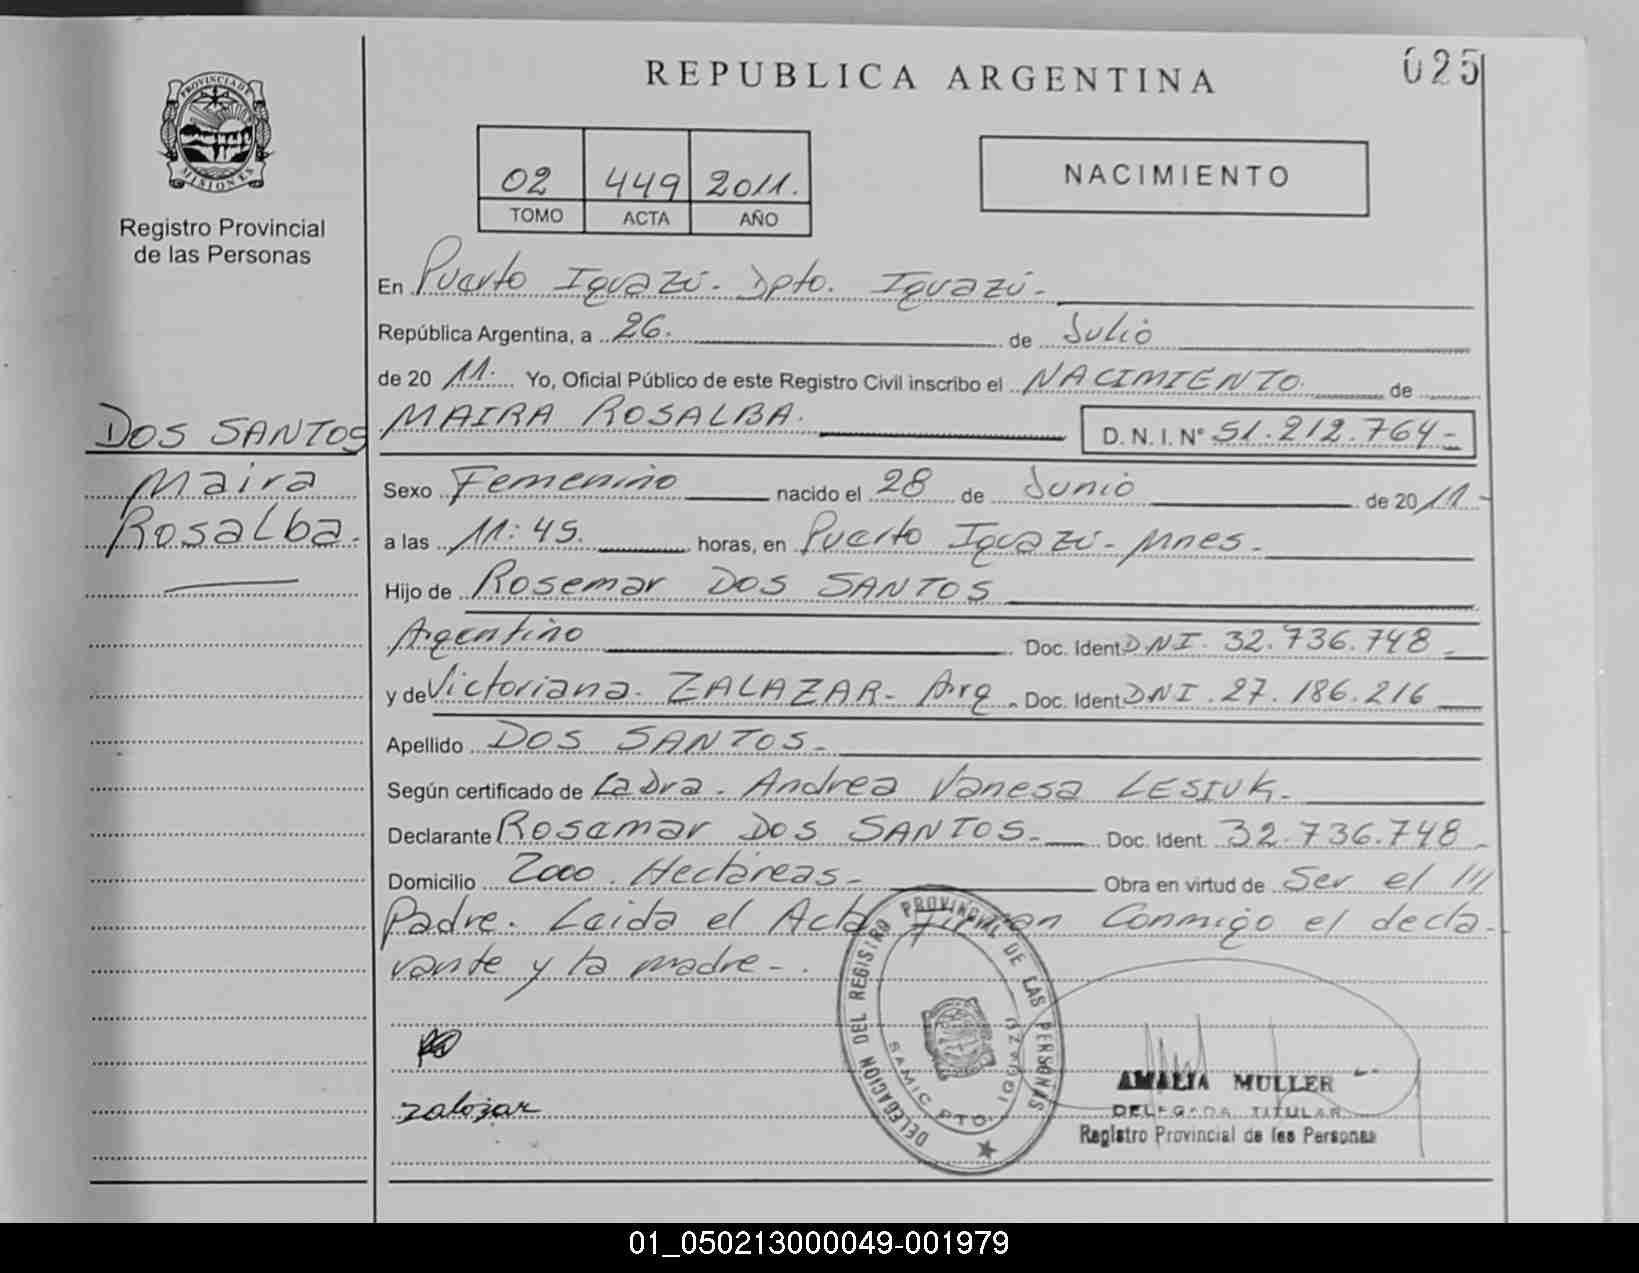 025
REPUBLICA ARGENTINA
PROVINCIA DE
MISIONES
Registro Provincial
de las Personas
02 449 2011.
TOMO ACTA AÑO
NACIMIENTO
En Puerto Iguazú - Dpto. Iguazú -
República Argentina, a 26. de Julio
de 20 11. Yo, Oficial Público de este Registro Civil inscribo el NACIMIENTO de
DOS SANTOS
Maira
Rosalba.
MAIRA ROSALBA. D. N. I. N° 51.212.764-
Sexo Femenino nacido el 28 de Junio de 20 11-
a las 11:45. horas, en Puerto Iguazú - Mnes -
Hijo de Rosemar DOS SANTOS
Argentino Doc. Ident DNI. 32.736.748
y de Victoriana ZALAZAR - Arg. Doc. Ident DNI. 27.186.216
Apellido DOS SANTOS -
Según certificado de La Dra. Andrea Vanesa LESIUK -
Declarante Rosemar DOS SANTOS - Doc. Ident. 32.736.748 -
Domicilio 2000 Hectáreas - Obra en virtud de Ser el ///
Padre. Leida el Acta Firman Conmigo el decla-
rante y la madre -.
zalazar
DELEGACION DEL REGISTRO PROVINCIAL DE LAS PERSONAS
SAMIC PTO. IGUAZU
AMALIA MULLER
DELEGADA TITULAR
Registro Provincial de las Personas
01_050213000049-001979